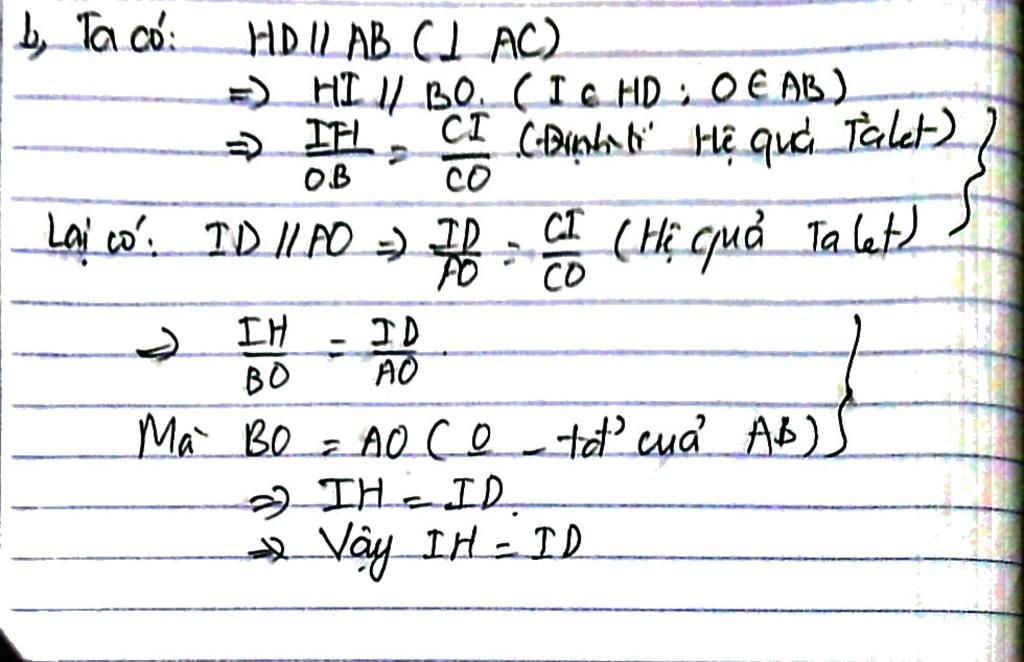 b, Ta có: HD // AB (⊥ AC)
=> HI // BO. (I ∈ HD ; O ∈ AB)
=> IH/OB = CI/CO (Định lí Hệ quả Talet)
Lại có: ID // AO => ID/AO = CI/CO (Hệ quả Talet)
=> IH/BO = ID/AO.
Mà BO = AO (O - tđ' của AB)
=> IH = ID.
=> Vậy IH = ID